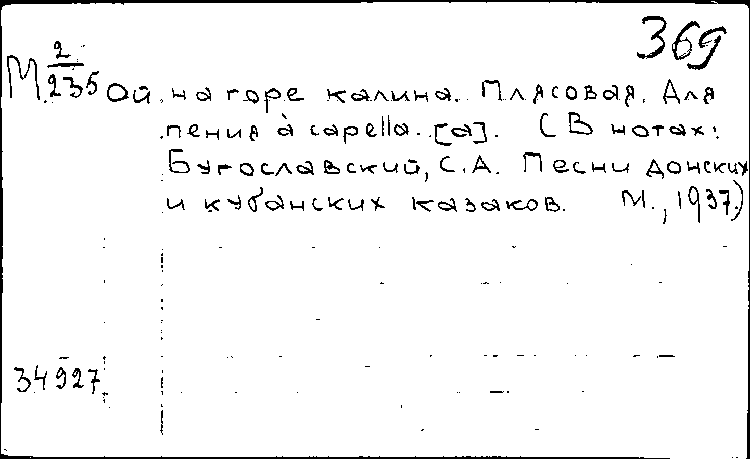 369
М 2/235 Ой, на горе калина. Плясовая. Для
пения à capella. [a]. (В нотах:
Бугославский, С.А. Песни донских
и кубанских казаков. М., 1937.)
34927